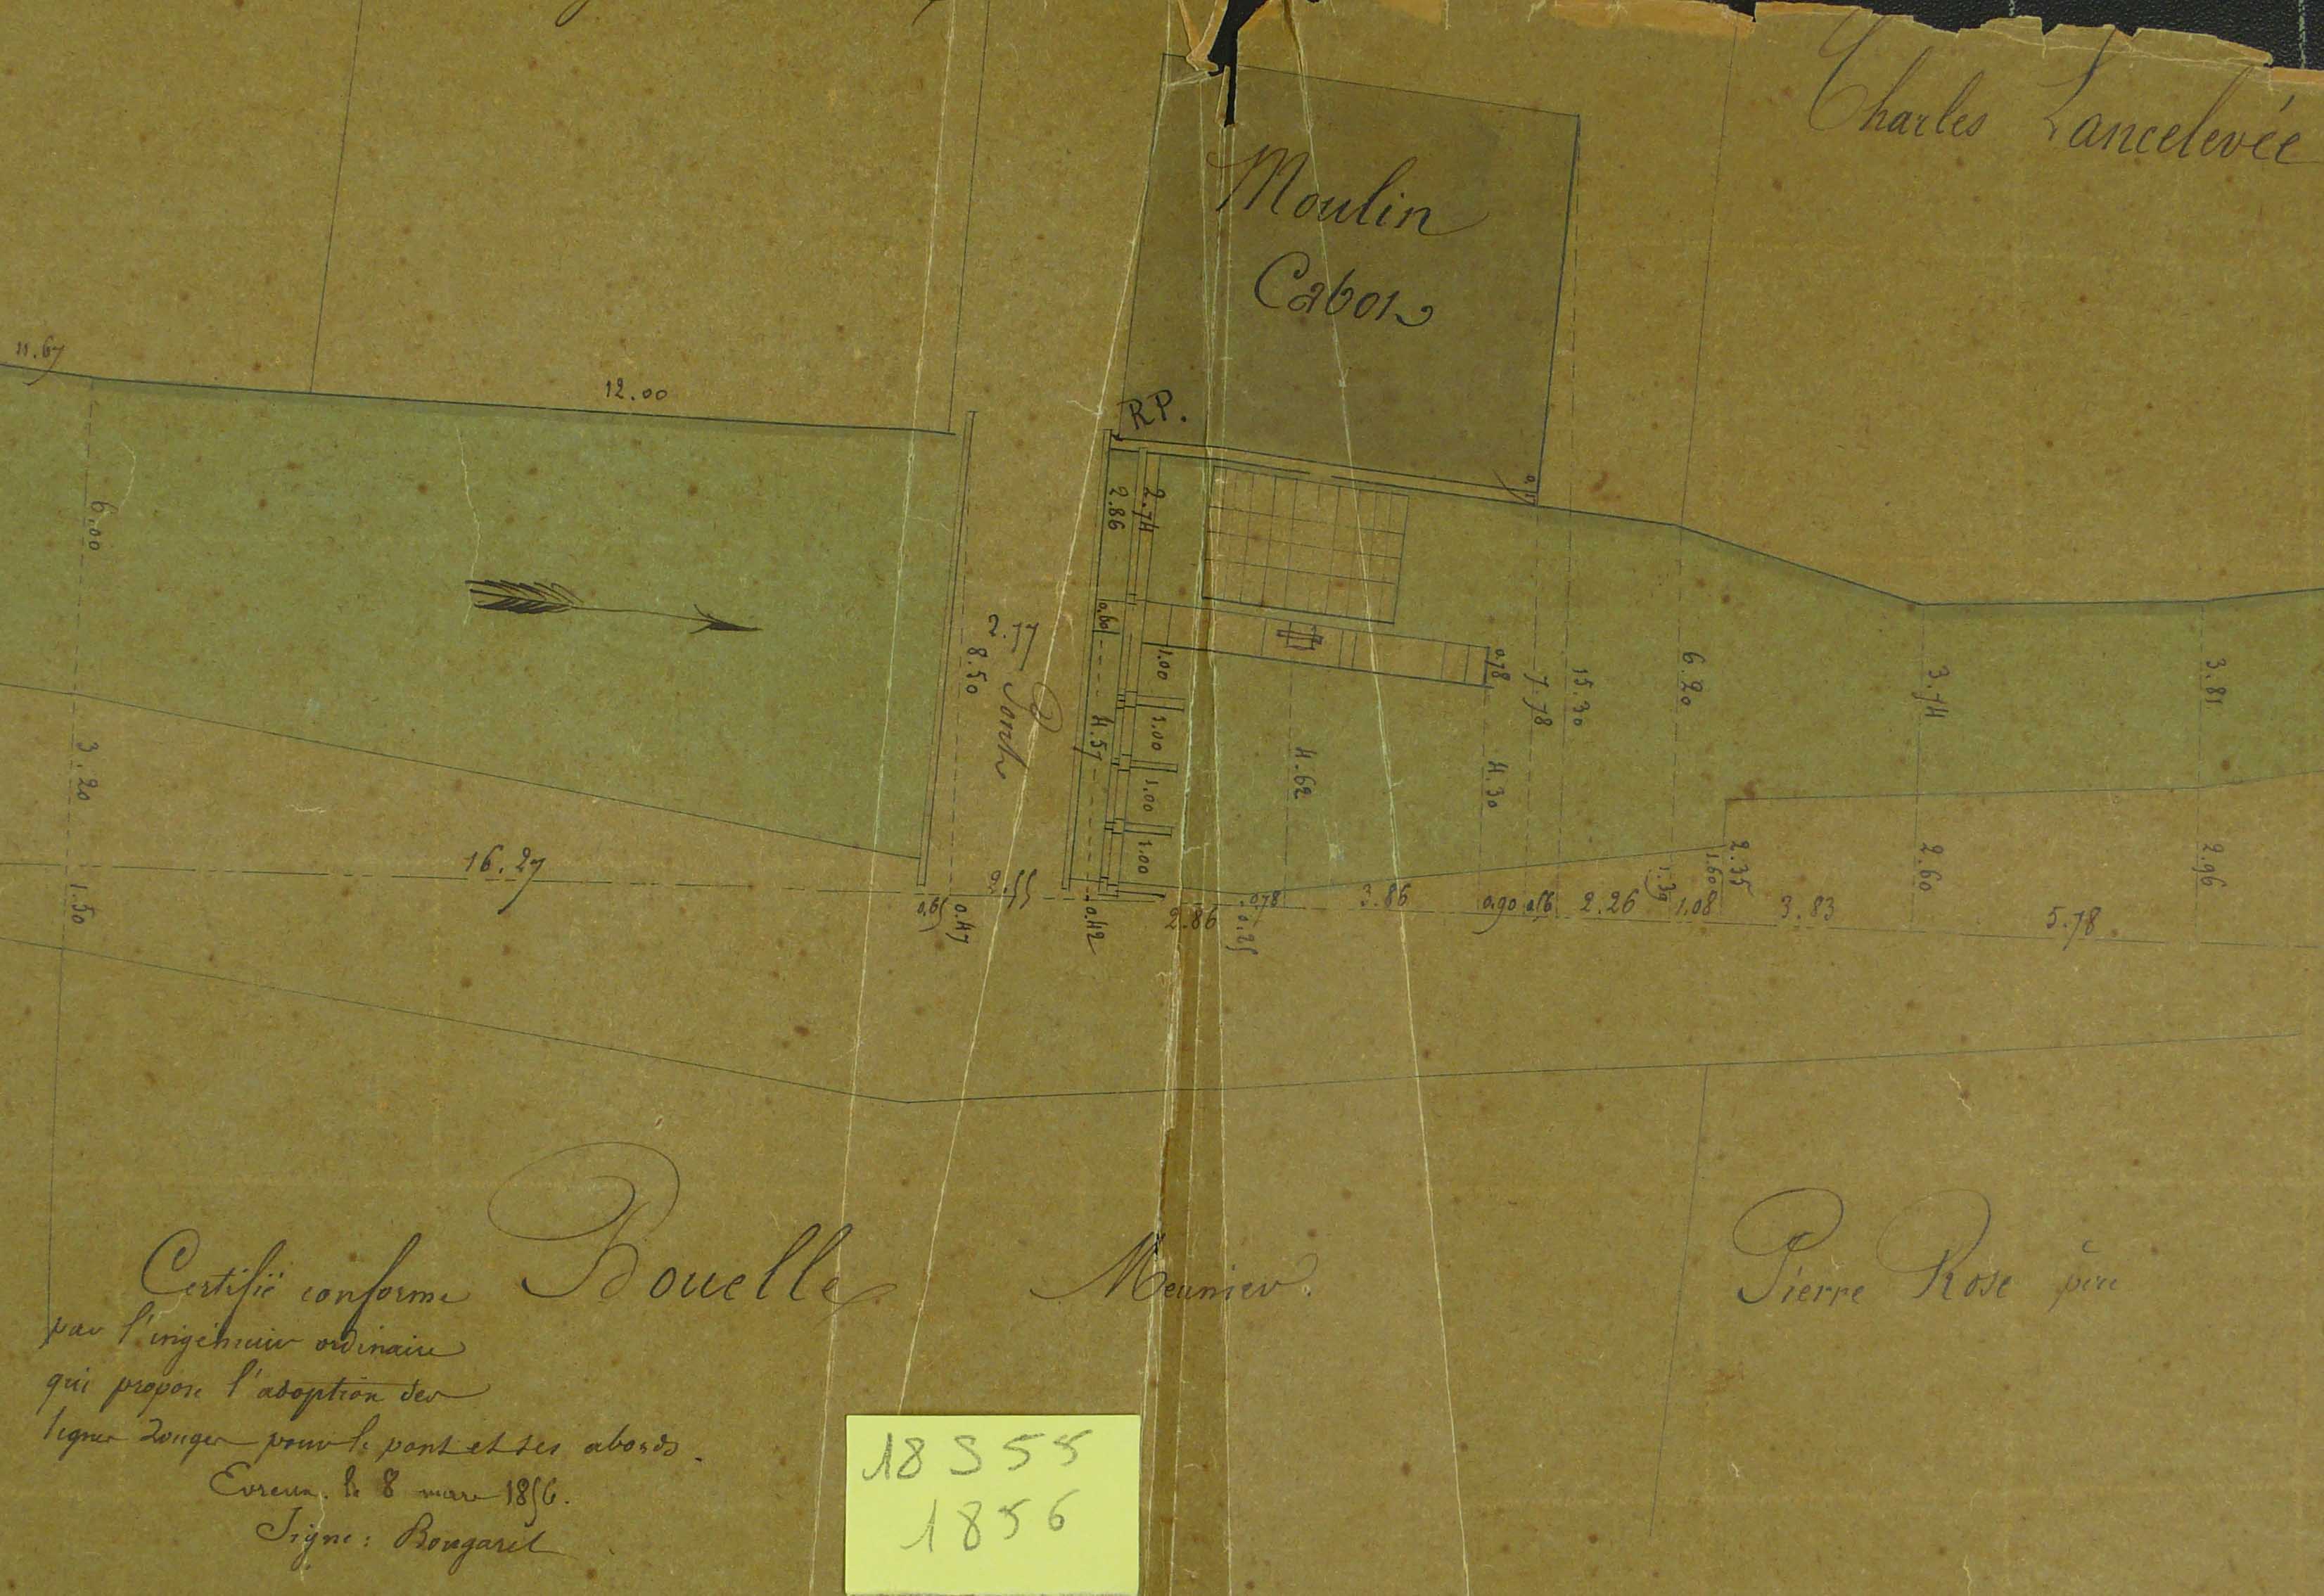 Charles Lancelevée
Moulin
Cabot
RP.
11.67
12.00
6.00
3.20
1.50
16.27
2.77
8.50
Pont
2.55
0.65
0.47
0.42
2.86
2.74
0.60
4.57
1.00
1.00
1.00
1.00
2.86
0.78
0.25
4.62
3.86
0.78
4.30
0.90
0.56
7.78
15.30
2.26
6.20
1.39
1.08
1.60
2.35
3.83
3.74
2.60
5.78
3.81
2.96
Bouelle Meunier.
Pierre Rose père
Certifié conforme
par l'ingénieur ordinaire
qui propose l'adoption des
lignes rouges pour le pont et ses abords.
Evreux, le 8 mars 1856.
Signé: Bougarel
18 S 55
1856